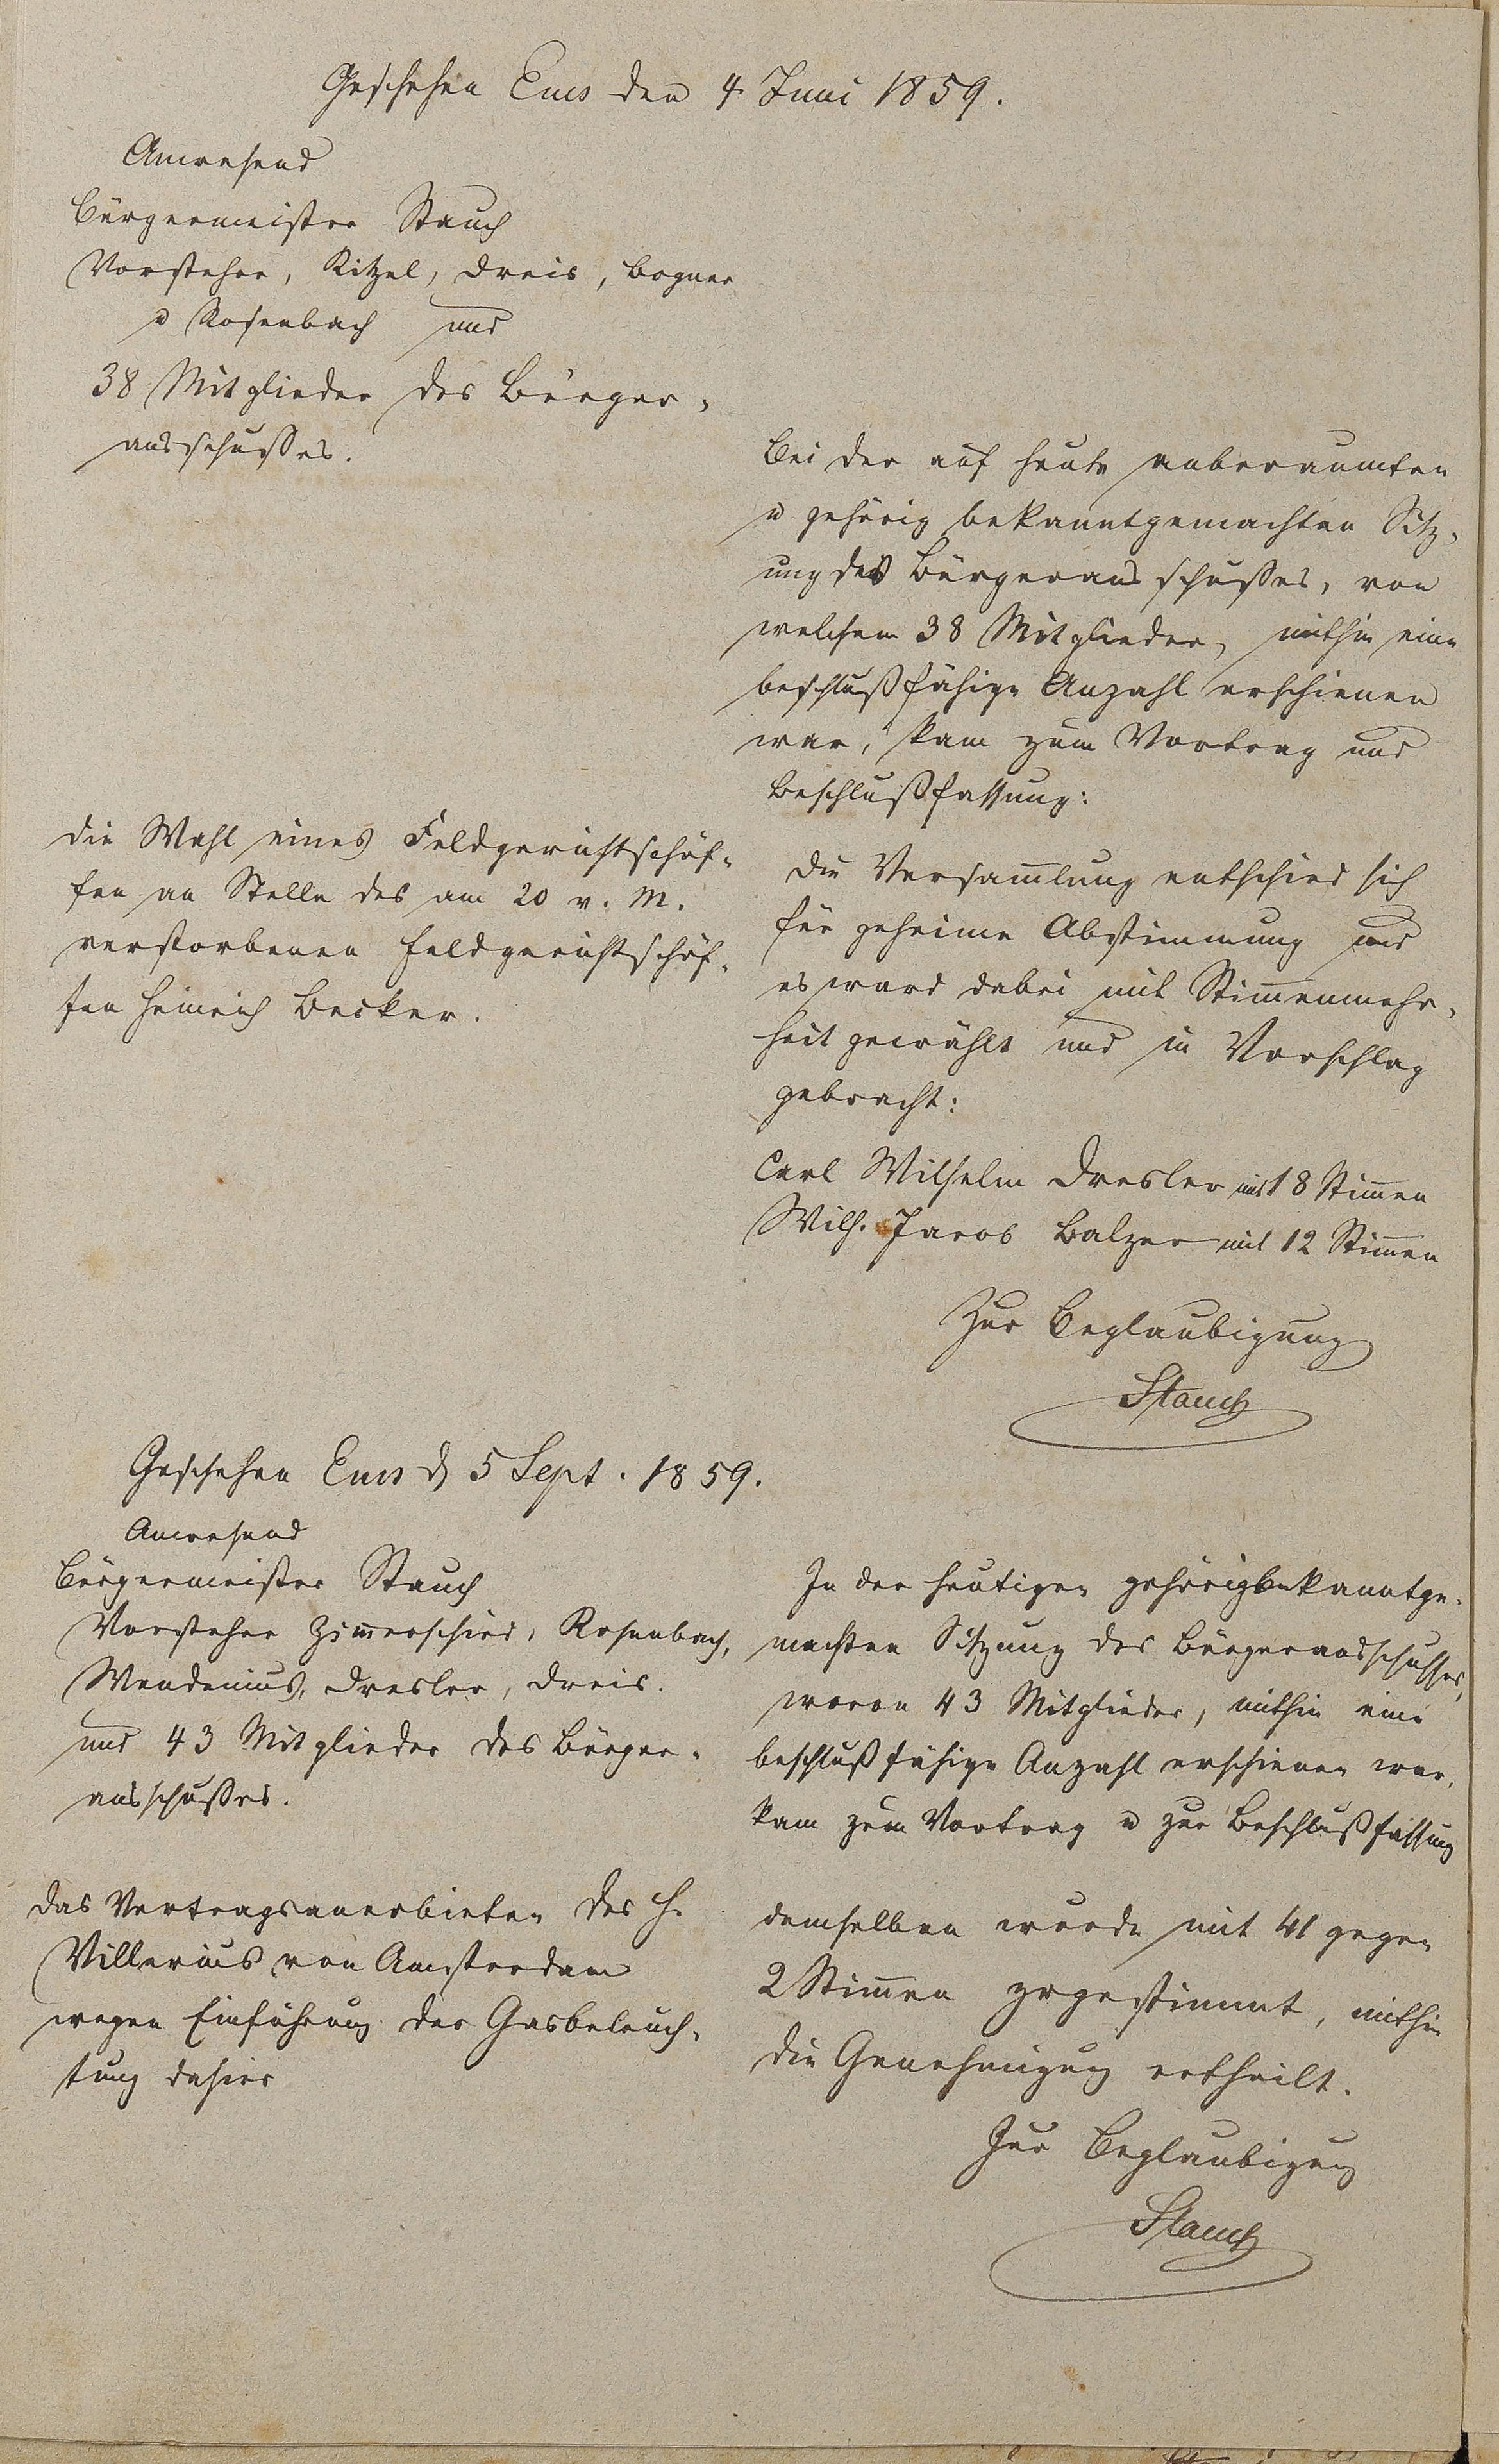 Geschehen Ems den 4 Juni 1859.
Anwesend
Bürgermeister Stauch
Vorsteher, Kitzel, Dreis, Bogner
u Rosenbach und
38 Mitglieder des Bürger-
ausschußes.
Bei der auf heute anberaumten
u gehörig bekanntgemachten Sitz-
ung des Bürgerausschußes, von
welchem 38 Mitglieder, mithin eine
beschlußfähige Anzahl erschienen
war, kam zum Vortrag und
Beschlußfassung:
die Wahl eines Feldgerichtschöf-
fen an Stelle des am 20 v. M.
verstorbenen Feldgerichtschöf-
fen Heinrich Becker.
Die Versam̄lung entschied sich
für geheime Abstimmung und
es ward dabei mit Stim̄enmehr-
heit gewählt und in Vorschlag
gebracht:
Carl Wilhelm Dresler mit 18 Stim̄en
Wilh. Jacob Balzer mit 12 Stim̄en
Zur Beglaubigung
Stauch
Geschehen Ems d 5 Sept. 1859.
Anwesend
Bürgermeister Stauch
Vorsteher Zim̄erschied, Rosenbach,
Wendenius, Dresler, Dreis.
und 43 Mitglieder des Bürger-
ausschußes.
In der heutigen gehörig bekanntge-
machten Sitzung des Bürgerausschusses,
wovon 43 Mitglieder, mithin eine
beschlußfähige Anzahl erschienen war,
kam zum Vortrag u zur Beschlußfassung
das Vertragsanerbieten des H.
Villerius von Amsterdam
wegen Einführung der Gasbeleuch-
tung dahier
demselben wurde mit 41 gegen
2 Stim̄en zugestimmt, mithin
die Genehmigung ertheilt.
Zur Beglaubigung
Stauch